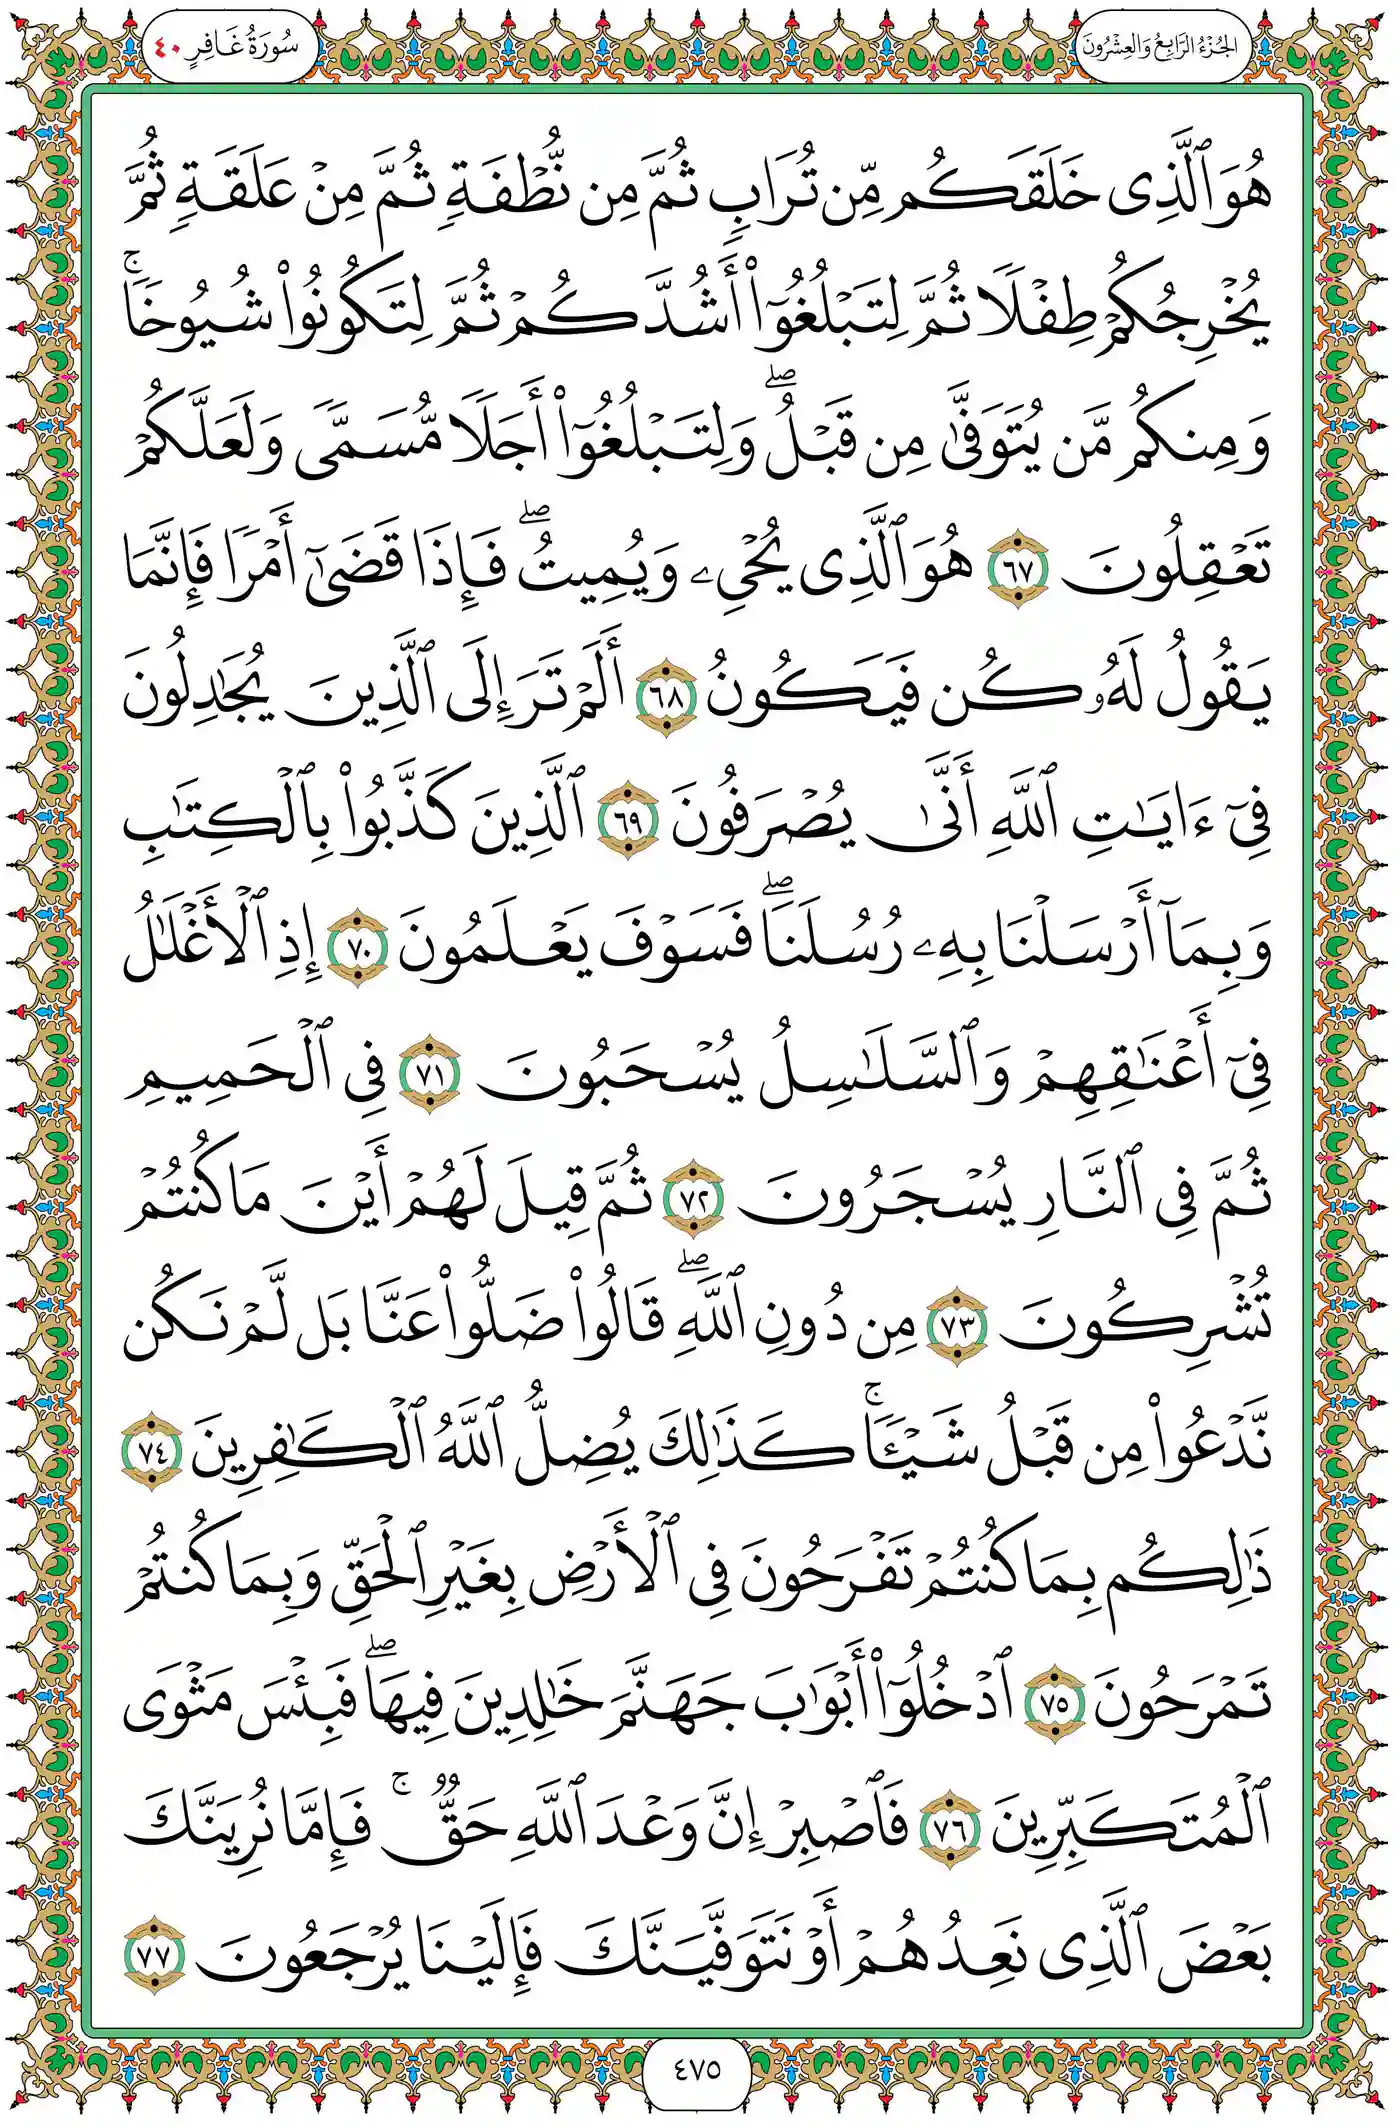 الجُزْءُ الرَّابِعُ وَالعِشْرُونَ
سُورَةُ غَافِرٍ ٤٠
هُوَ ٱلَّذِى خَلَقَكُم مِّن تُرَابٍ ثُمَّ مِن نُّطْفَةٍ ثُمَّ مِنْ عَلَقَةٍ ثُمَّ
يُخْرِجُكُمْ طِفْلًا ثُمَّ لِتَبْلُغُوٓا۟ أَشُدَّكُمْ ثُمَّ لِتَكُونُوا۟ شُيُوخًا ۚ
وَمِنكُم مَّن يُتَوَفَّىٰ مِن قَبْلُ ۖ وَلِتَبْلُغُوٓا۟ أَجَلًا مُّسَمًّى وَلَعَلَّكُمْ
تَعْقِلُونَ ٦٧ هُوَ ٱلَّذِى يُحْىِۦ وَيُمِيتُ ۖ فَإِذَا قَضَىٰٓ أَمْرًا فَإِنَّمَا
يَقُولُ لَهُۥ كُن فَيَكُونُ ٦٨ أَلَمْ تَرَ إِلَى ٱلَّذِينَ يُجَٰدِلُونَ
فِىٓ ءَايَٰتِ ٱللَّهِ أَنَّىٰ يُصْرَفُونَ ٦٩ ٱلَّذِينَ كَذَّبُوا۟ بِٱلْكِتَٰبِ
وَبِمَآ أَرْسَلْنَا بِهِۦ رُسُلَنَا ۖ فَسَوْفَ يَعْلَمُونَ ٧٠ إِذِ ٱلْأَغْلَٰلُ
فِىٓ أَعْنَٰقِهِمْ وَٱلسَّلَٰسِلُ يُسْحَبُونَ ٧١ فِى ٱلْحَمِيمِ
ثُمَّ فِى ٱلنَّارِ يُسْجَرُونَ ٧٢ ثُمَّ قِيلَ لَهُمْ أَيْنَ مَا كُنتُمْ
تُشْرِكُونَ ٧٣ مِن دُونِ ٱللَّهِ ۖ قَالُوا۟ ضَلُّوا۟ عَنَّا بَل لَّمْ نَكُن
نَّدْعُوا۟ مِن قَبْلُ شَيْـًٔا ۚ كَذَٰلِكَ يُضِلُّ ٱللَّهُ ٱلْكَٰفِرِينَ ٧٤
ذَٰلِكُم بِمَا كُنتُمْ تَفْرَحُونَ فِى ٱلْأَرْضِ بِغَيْرِ ٱلْحَقِّ وَبِمَا كُنتُمْ
تَمْرَحُونَ ٧٥ ٱدْخُلُوٓا۟ أَبْوَٰبَ جَهَنَّمَ خَٰلِدِينَ فِيهَا ۖ فَبِئْسَ مَثْوَى
ٱلْمُتَكَبِّرِينَ ٧٦ فَٱصْبِرْ إِنَّ وَعْدَ ٱللَّهِ حَقٌّ ۚ فَإِمَّا نُرِيَنَّكَ
بَعْضَ ٱلَّذِى نَعِدُهُمْ أَوْ نَتَوَفَّيَنَّكَ فَإِلَيْنَا يُرْجَعُونَ ٧٧
٤٧٥